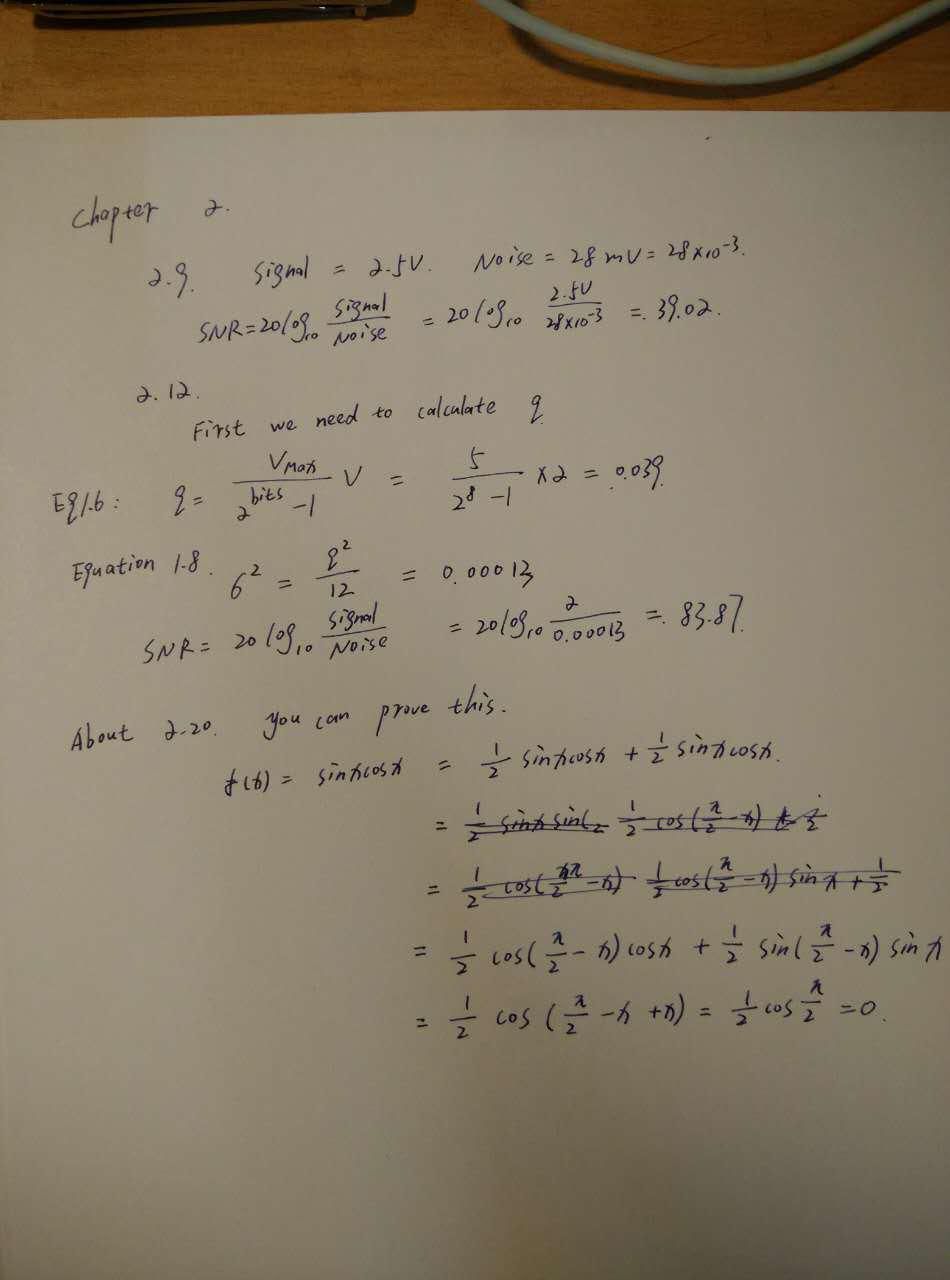 Chapter 2.
2.9. Signal = 2.5V. Noise = 28mV = 28×10⁻³.
SNR = 20log₁₀ Signal/Noise = 20log₁₀ 2.5V/28×10⁻³ = 39.02.
2.12.
First we need to calculate q
Eq1.6: q = VMax/2^bits −1 V = 5/2⁸ −1 ×2 = 0.039
Equation 1.8. σ² = q²/12 = 0.00013
SNR = 20log₁₀ Signal/Noise = 20log₁₀ 2/0.00013 = 83.87.
About 2.20. you can prove this.
f(x) = sinxcosx = 1/2 sinxcosx + 1/2 sinxcosx.
= 1/2 sinx sin( 1/2 cos(π/2 −x)
= 1/2 cos( π/2 −x) 1/2 cos(π/2 −x) sinx + 1/2
= 1/2 cos(π/2 −x) cosx + 1/2 sin(π/2 −x) sinx
= 1/2 cos (π/2 −x +x) = 1/2 cos π/2 =0.